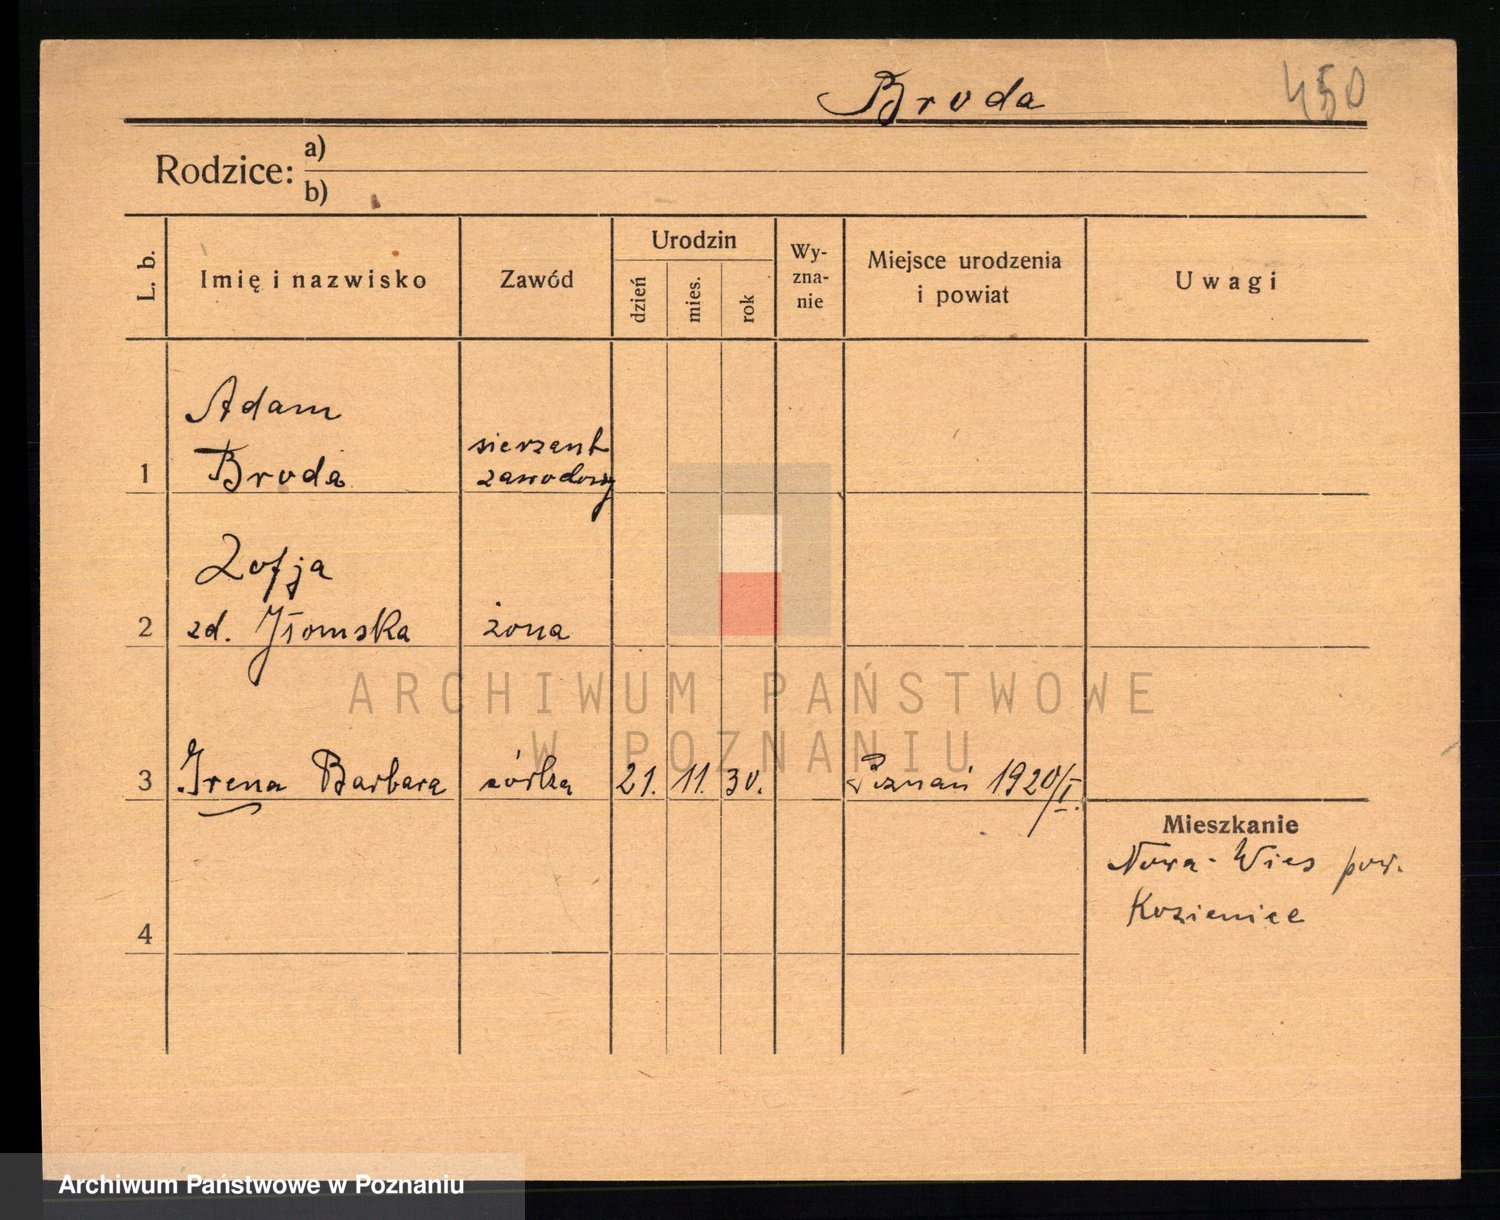 Broda
450
Rodzice: a)
b)
L. b.
Imię i nazwisko
Zawód
Urodzin
dzień
mies.
rok
Wy-
zna-
nie
Miejsce urodzenia
i powiat
Uwagi
1
Adam
Broda
sierżant
zawodowy
2
Zofja
zd. Jłomska
żona
3
Irena Barbara
córka
21.
11.
30.
Poznań 1920/I.
Mieszkanie
Nowa-Wieś pow.
Kozienice
4
ARCHIWUM PAŃSTWOWE
W POZNANIU
Archiwum Państwowe w Poznaniu